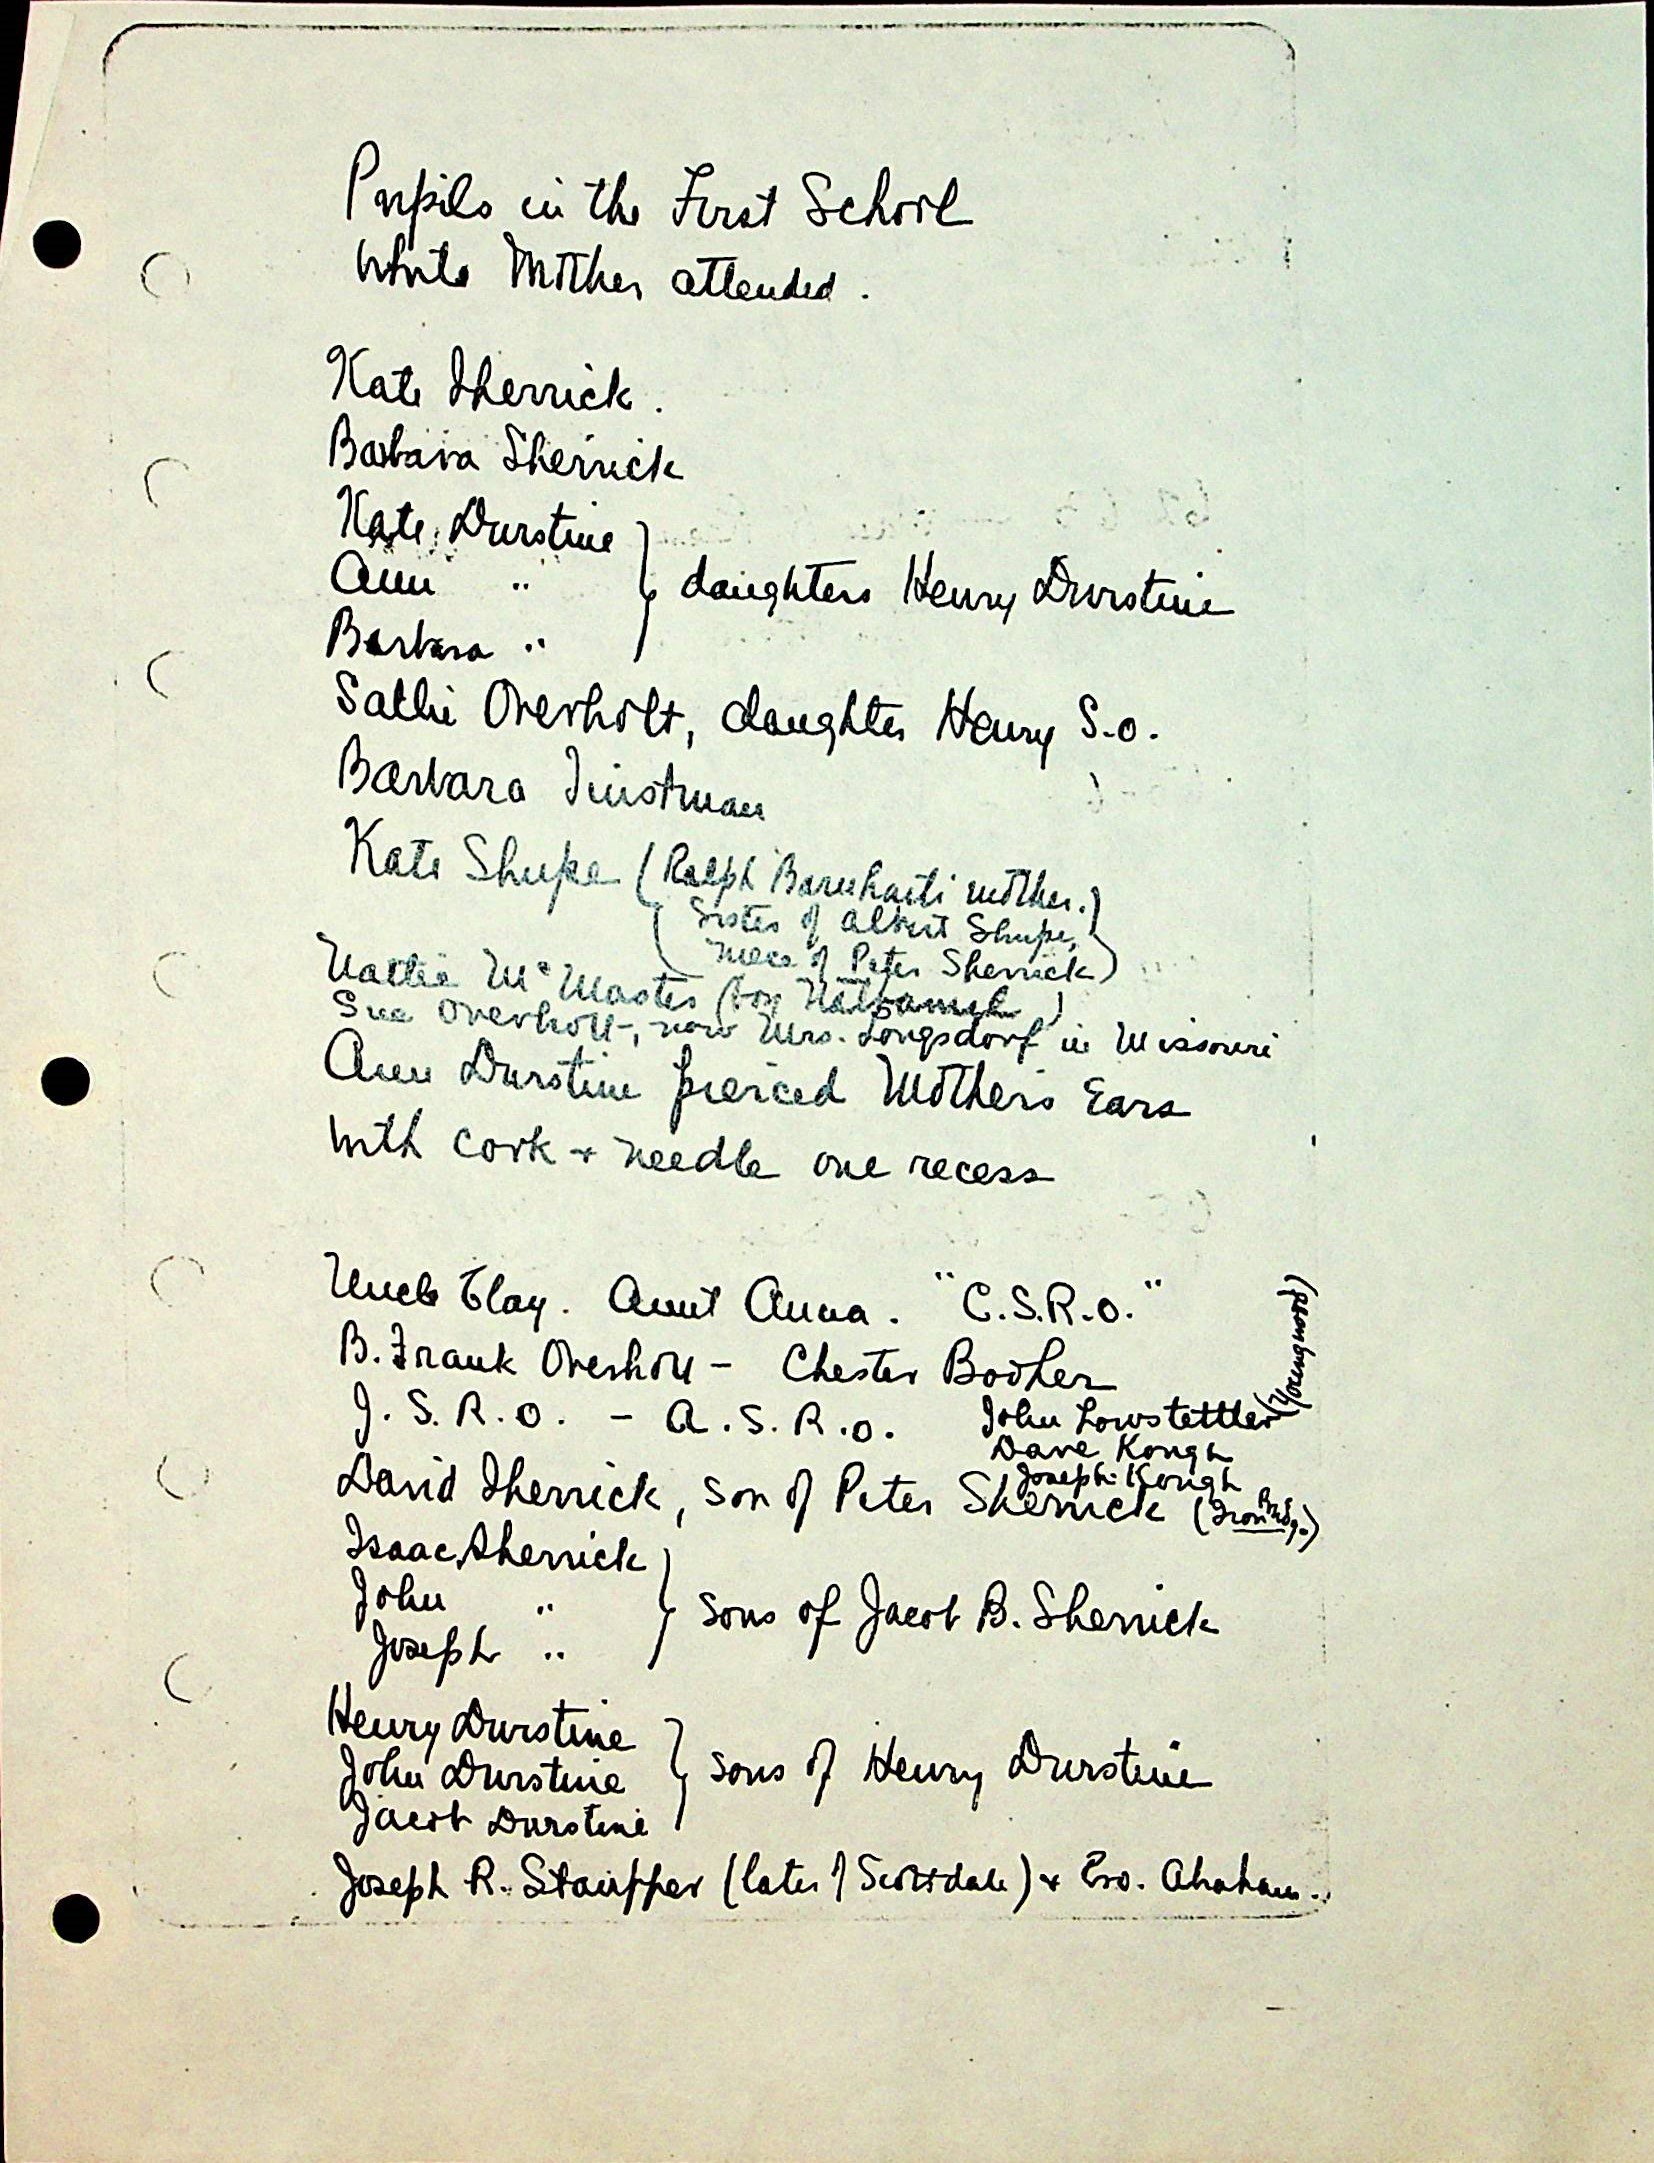 Pupils in the First School
While Mother attended.
Kate Sherrick.
Barbara Sherrick
Kate Durstine
Ann " } daughters Henry Durstine
Barbara "
Sallie Overholt, daughter Henry S.O.
Barbara Tinstman
Kate Shupe (Ralph Barnharts mother.)
(Sister of Albert Shupe,
niece of Peter Sherrick)
Nattie McMaster (boy Nathaniel)
Sue Overholt, now Mrs. Longsdorf in Missouri
Ann Durstine pierced Mothers Ears
with cork + needle one recess
Uncle Clay. Aunt Anna. "C.S.R.O."
B. Frank Overholt - Chester Booher
J.S.R.O. - A.S.R.O. John Lowstettler (Youngwood)
Dave Kough
Joseph Kough
David Sherrick, son of Peter Sherrick (Iron Bridg.)
Isaac Sherrick
John " } sons of Jacob B. Sherrick
Joseph "
Henry Durstine
John Durstine } sons of Henry Durstine
Jacob Durstine
Joseph R. Stauffer (later of Scottdale) + Bro. Abraham.